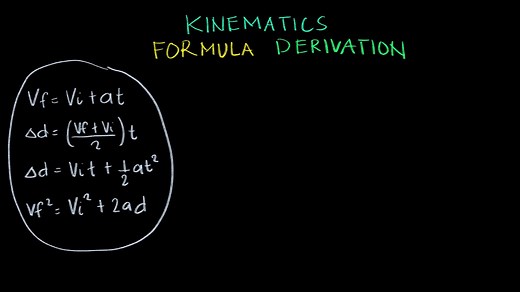 KINEMATICS
FORMULA DERIVATION
Vf = Vi + at
Δd = (Vf + Vi / 2) t
Δd = Vit + 1/2 at²
Vf² = Vi² + 2ad